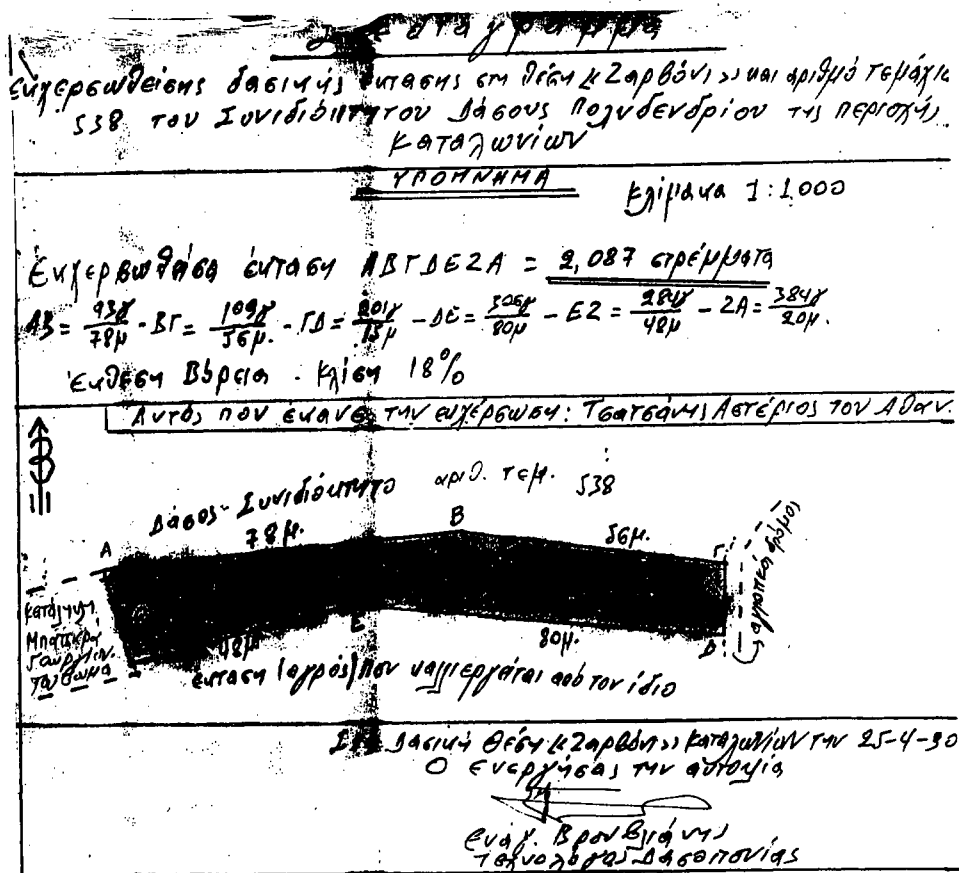 διάγραμμα
Εκχερσωθείσης δασικής έκτασης στη θέση «Ζαρβόνι» και αριθμό τεμάχιο
538 του Συνιδιόκτητου Δάσους Πολυδενδρίου της περιοχής
Καταλωνίων
ΥΠΟΜΝΗΜΑ
Κλίμακα 1:1000
Εκχερσωθείσα έκταση ΑΒΓΔΕΖΑ = 2,087 στρέμματα
ΑΒ = 93γ/78μ - ΒΓ = 109γ/56μ. - ΓΔ = 201γ/15μ - ΔΕ = 306γ/80μ - ΕΖ = 284γ/48μ - ΖΑ = 384γ/20μ.
Έκθεση Βόρεια - κλίση 18%
Αυτός που έκανε την εκχέρσωση: Τσατσάνης Αστέριος του Αθαν.
Δάσος Συνιδιόκτητο αριθ. τεμ. 538
78μ.
Β
56μ.
Α
Γ
αγροτικός δρόμος
Ε
48μ
80μ.
Δ
έκταση (αγρός) που καλλιεργείται από τον ίδιο
Δασική θέση «Ζαρβόνι» Καταλωνίων την 25-4-90
Ο ενεργήσας την αυτοψία
Ευάγ. Βρουβλιάνης
Τεχνολόγος Δασοπονίας